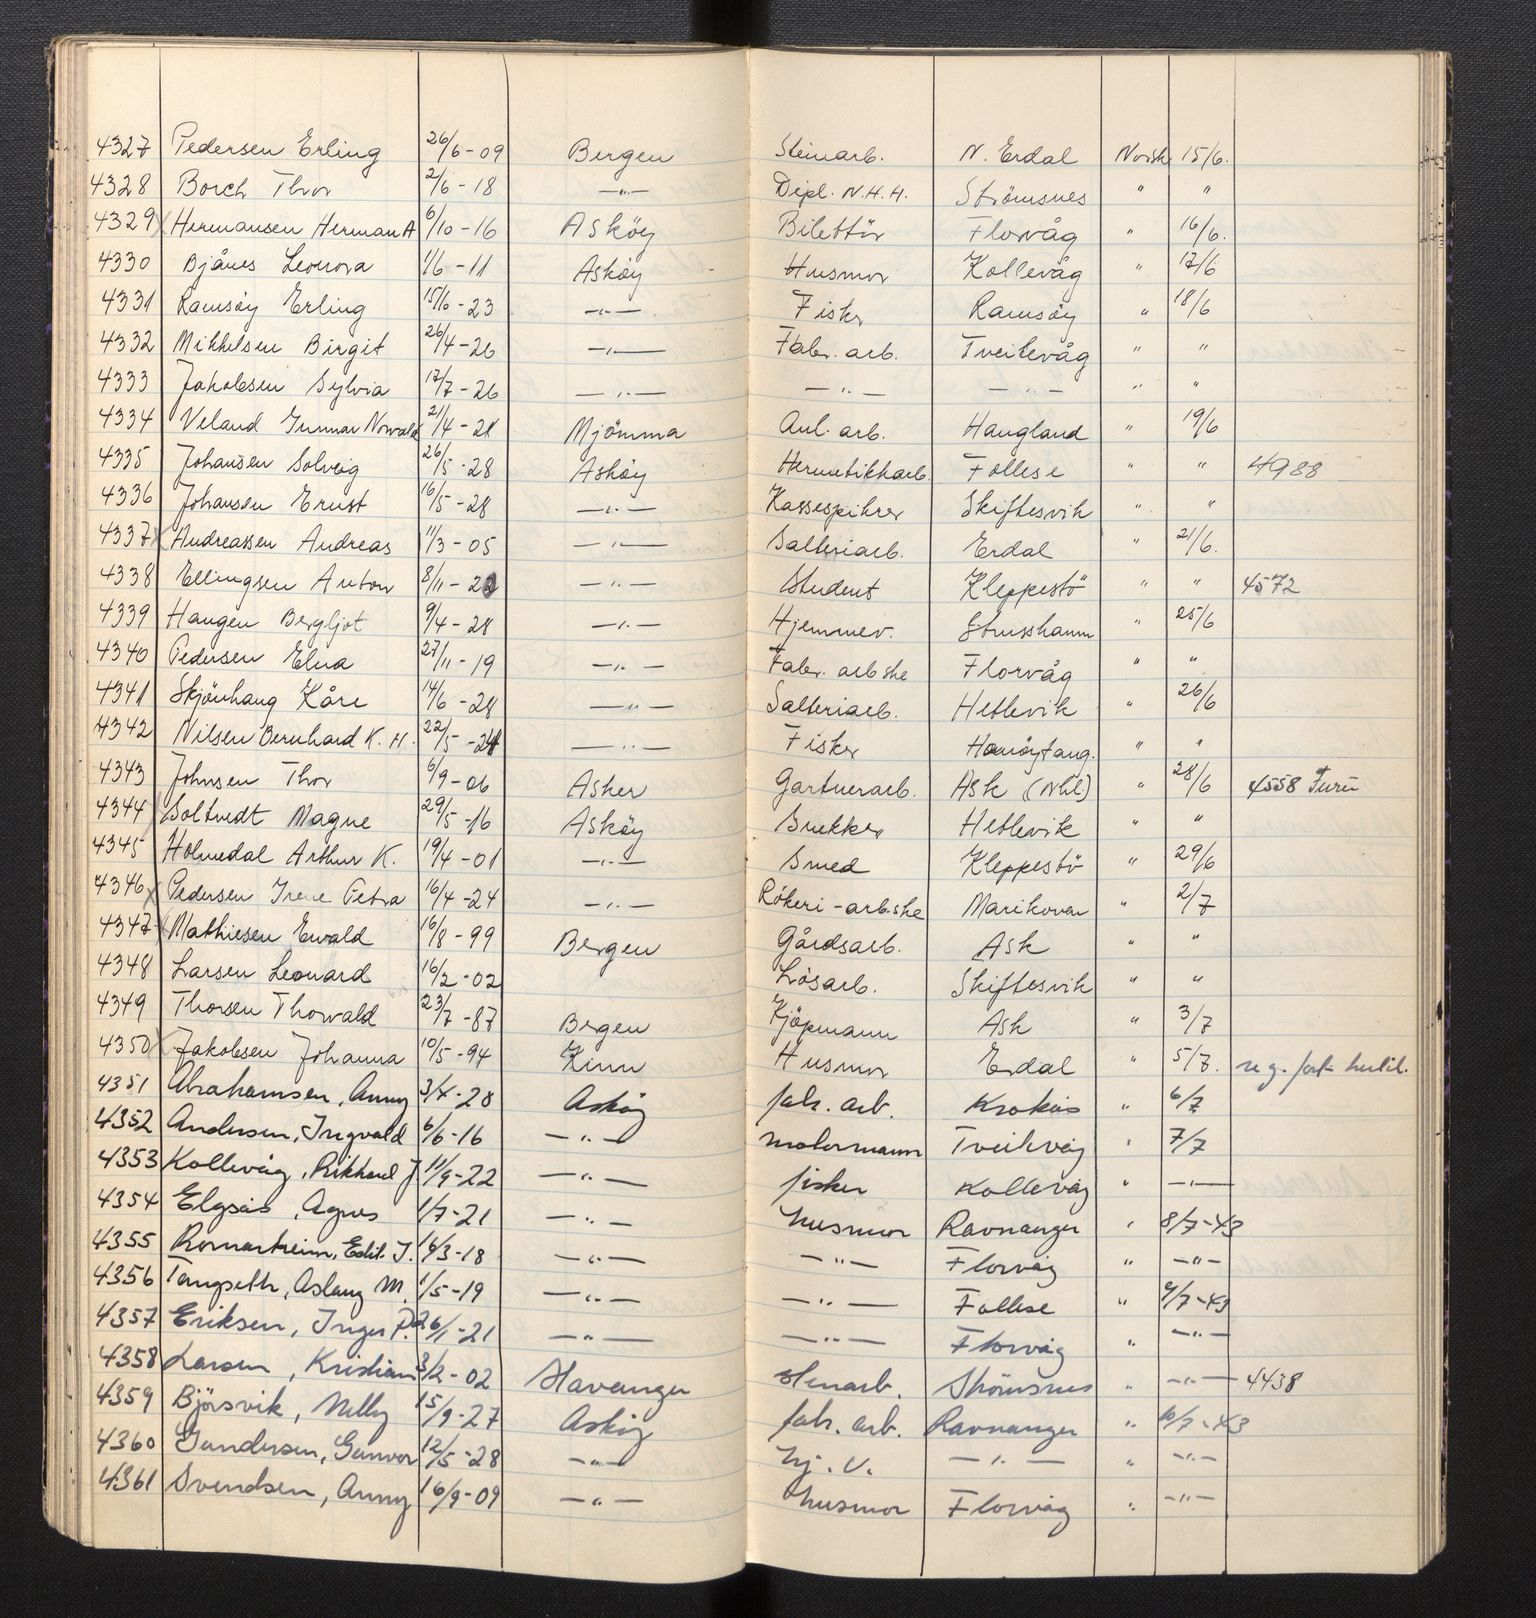 4327 Pedersen Erling 26/6-09 Bergen Steinarb. N. Erdal Norsk 15/6.
4328 Borch Thor 2/6-18 —"— Dipl. N.H.H. Strömsnes " "
4329 Hermansen Herman A 6/10-16 Asköy Bilettör Florvåg " 16/6.
4330 Bjånes Leonora 1/6-11 Asköy Husmor Kollevåg " 17/6
4331 Ramsöy Erling 15/10-23 —"— Fisker Ramsöy " 18/6
4332 Mikkelsen Birgit 26/4-26 —"— Fabr. arb. Tveitevåg " "
4333 Jakobsen Sylvia 17/7-26 —"— —"— —"— " "
4334 Veland Gunnar Norvald 21/4-28 Mjömma Anl. arb. Haugland " 19/6
4335 Johansen Solveig 26/5-28 Asköy Hermetikkarb. Follese " " 4988
4336 Johansen Ernst 16/5-28 —"— Kassespikrer Skiftesvik " "
4337 Andreassen Andreas 11/3-05 —"— Salteriarb. Erdal " 21/6.
4338 Ellingsen Anton 8/11-22 —"— Student Kleppestö " " 4572
4339 Haugen Bergljot 9/4-28 —"— Hjemmev. Strusshamn " 25/6
4340 Pedersen Elna 27/11-19 —"— Fabr. arbske Florvåg " "
4341 Skjönhaug Kåre 14/6-28 —"— Salteriarb. Hetlevik " 26/6
4342 Nilsen Bernhard K. H. 22/5-24 —"— Fisker Hanöytang. " "
4343 Johnsen Thor 6/9-06 Asker Gartnerarb. Ask (Nhl) " 28/6 4558 Furu
4344 Soltvedt Magne 29/5-16 Asköy Snekker Hetlevik " "
4345 Holmedal Arthur K. 19/4-01 —"— Smed Kleppestö " 29/6
4346 Pedersen Irene Petra 16/4-24 —"— Rökeri-arbske Marikoven " 2/7
4347 Mathiesen Ewald 16/8-99 Bergen Gårdsarb. Ask " "
4348 Larsen Leonard 16/2-02 Lösarb. Skiftesvik " "
4349 Thorsen Thorvald 23/7-87 Bergen Kjöpmann Ask " 3/7
4350 Jakobsen Johanna 10/5-94 Kinn Husmor Erdal " 5/7.
4351 Abrahamsen, Anny 3/4-28 Asköy fabr. arb. Krokås " 6/7
4352 Andersen, Ingvald 6/6-16 —"— motormann Tveitevåg " 7/7
4353 Kollevåg, Rikhard J. 11/9-22 —"— fisker Kollevåg " —"—
4354 Elgsås, Agnes 1/7-21 —"— husmor Ravnanger " 8/7-43
4355 Romarheim, Edit. J. 14/3-18 —"— —"— Florvåg " —"—
4356 Tangseth, Aslaug M. 1/5-19 —"— —"— Follese " 9/7-43
4357 Eriksen, Inger P. 26/1-21 —"— —"— Florvåg " —"—
4358 Larsen, Kristian 3/2-02 Stavanger stenarb. Strömsnes " —"— 4438
4359 Björsvik, Nelly 15/9-27 Asköy fabr. arb. Ravnanger " 10/7-43
4360 Gundersen, Gunvor 12/5-28 —"— hj. v. —"— " —"—
4361 Svendsen, Anny 16/9-09 —"— husmor Florvåg " —"—